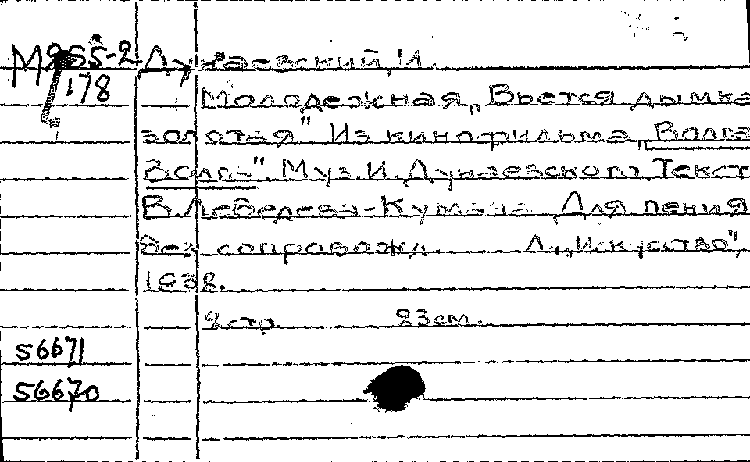 М955-2 Дунаевский, И.
178
Молодежная „Вьется дымка
золотая". Из кинофильма „Волга
Волга". Муз. И. Дунаевского. Текст
В. Лебедева-Кумача. Для пения
без сопровожд. Л., „Искусство",
1938.
2 стр. 23 см.
56671
56670